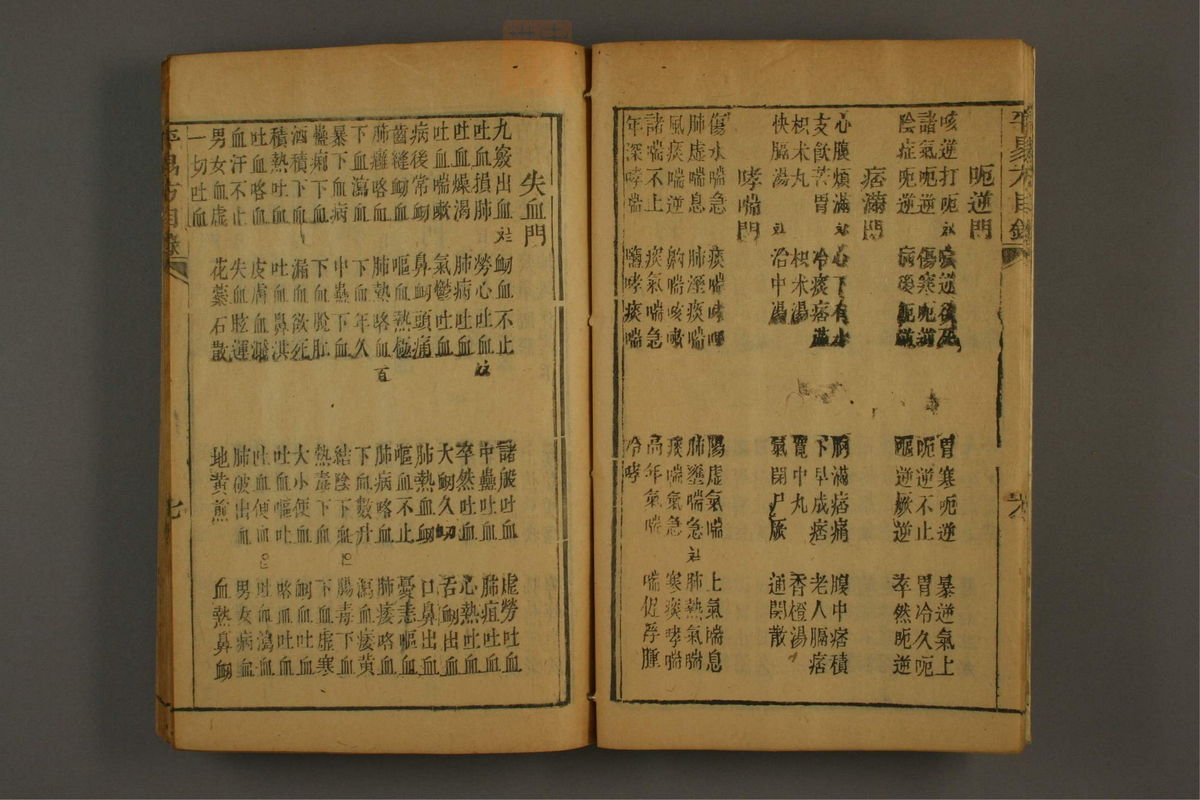 平易方目錄
呃逆門
咳逆打呃 咳逆欲死 胃寒呃逆 暴逆氣上
諸氣呃逆 傷寒呃逆 呃逆不止 胃冷久呃
陰症呃逆 病後呃逆 嘔逆厥逆 卒然呃逆
痞滿門
心腹煩滿 心下有水 胸滿痞痛 腹中痞積
支飲苦冒 冷痰痞滿 下早成痞 老人膈痞
枳朮丸 枳朮湯 寬中丸 香橙湯
快膈湯 治中湯 氣閉尸厥 通関散
哮喘門
傷水喘急 痰喘哮 陽虛氣喘 上氣喘息
肺虛喘息 肺溼痰喘 肺壅喘急 肺熱氣喘
風痰喘逆 齁喘咳嗽 痰喘氣急 寒痰哮喘
諸喘不上 痰氣喘急 高年氣喘 喘促浮腫
年深哮喘 鹽哮痰喘 冷哮
六
失血門
九竅出血 衂血不止 諸般吐血 虛勞吐血
吐血損肺 勞心吐血 中蠱吐血 肺疽吐血
吐血燥渴 肺病吐血 卒然吐血 心熱吐血
吐血喘嗽 氣鬱吐血 大衂久衂 舌衂出血
病後常衂 鼻衂頭痛 肺熱血衂 口鼻出血
齒縫衂血 嘔血熱極 嘔血不止 憂恚嘔血
肺癰咯血 肺熱咯血 肺病咯血 肺痿咯血
下血瀉血 下血年久 下血數升 瀉血痿黃
暴下血病 中蠱下血 結陰下血 腸毒下血
蠱痢下血 下血脫肛 熱毒下血 下血虛寒
酒積下血 漏血欲死 大小便血 衂血吐血
積熱吐血 吐血鼻洪 吐血嘔吐 咯血吐血
吐血喀血 皮膚血濺 吐血便血 吐血瀉血
血汗不止 失血眩運 肺破出血 男女病血
男女血虛 花蕊石散 地黃煎 血熱鼻衂
一切吐血
平易方目錄
七